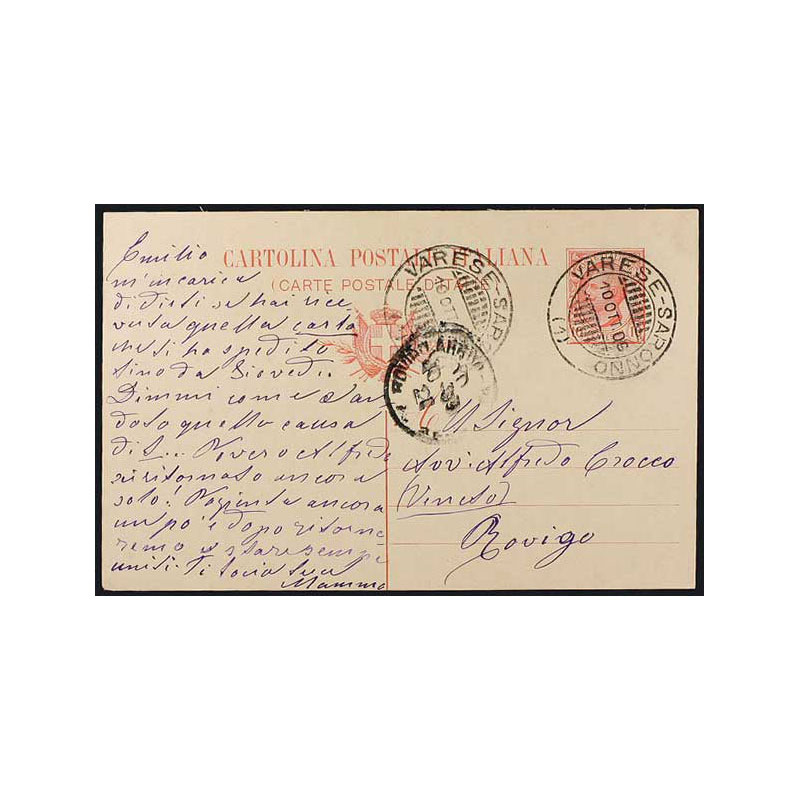 CARTOLINA POSTALE ITALIANA
(CARTE POSTALE D'ITALIE)
VARESE-SARONNO
10 OTT 06
(1)
VARESE-SAR
10 OTT
ROVIGO ARRIVO
Emilio
m'incarica
di dirti se hai rice
vuta quella carta
che ti ha spedito
sino da Giovedì.
Dimmi come è an
data quella causa
di S... Povero Alfredo
sei ritornato ancora
solo! Pazienta ancora
un po' e dopo ritorne
remo a stare sempre
uniti. Ti bacia tua
Mamma
Il Signor
Avv. Alfredo Crocco
(Veneto)
Rovigo